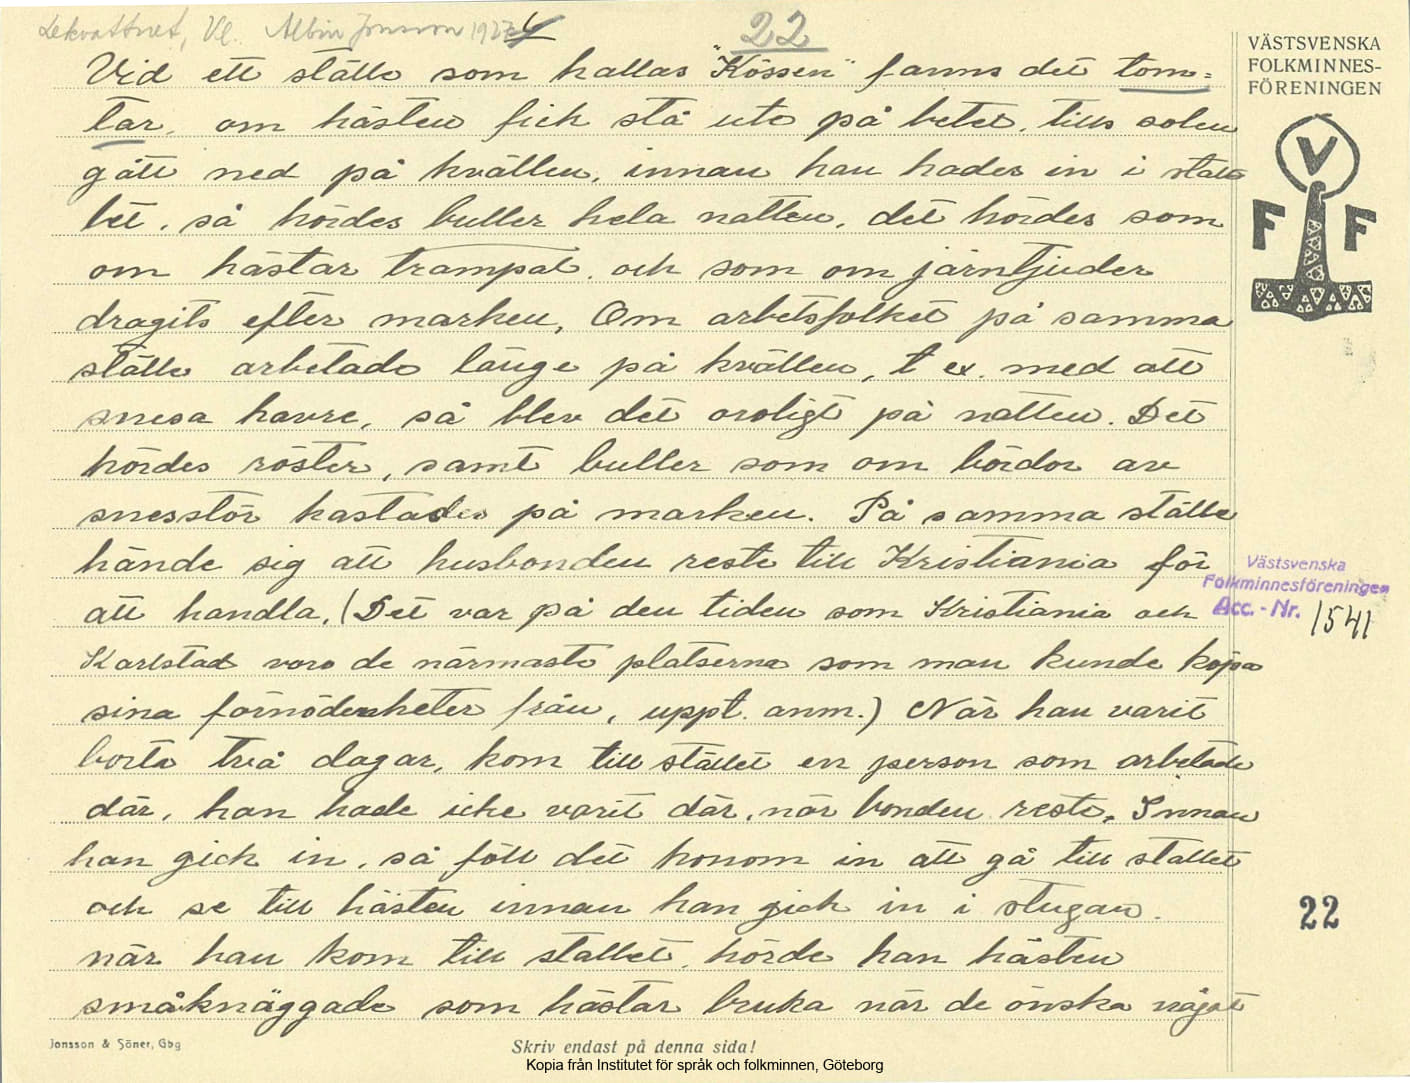 Lekvattnet, Vl. Albin Jonsson 1927
22
Vid ett ställe som kallas "Kössen" fanns det tom=
tar, om hästen fick stå ute på betet, tills solen
gått ned på kvällen, innan han hades in i stal=
let, så hördes buller hela natten, det hördes som
om hästar trampat, och som om järntjuder
dragits efter marken, Om arbetsfolket på samma
ställe arbetade länge på kvällen, t ex. med att
snesa havre, så blev det oroligt på natten. Det
hördes röster, samt buller som om bördor av
snesstör kastades på marken. På samma ställe
hände sig att husbonden reste till Kristiania för
att handla, (Det var på den tiden som Kristiania och
Karlstad voro de närmaste platserna som man kunde köpa
sina förnödenheter från, uppt. anm.) När han varit
borta två dagar, kom till stället en person som arbetade
där, han hade icke varit där, när bonden reste. Innan
han gick in, så föll det honom in att gå till stallet
och se till hästen innan han gick in i stugan.
när han kom till stallet, hörde han hästen
småknäggade som hästar bruka när de önska något
VÄSTSVENSKA
FOLKMINNES-
FÖRENINGEN
V
F F
Västsvenska
Folkminnesföreningen
Acc. - Nr. 1541
22
Jonsson & Söner, Gbg
Skriv endast på denna sida!
Kopia från Institutet för språk och folkminnen, Göteborg